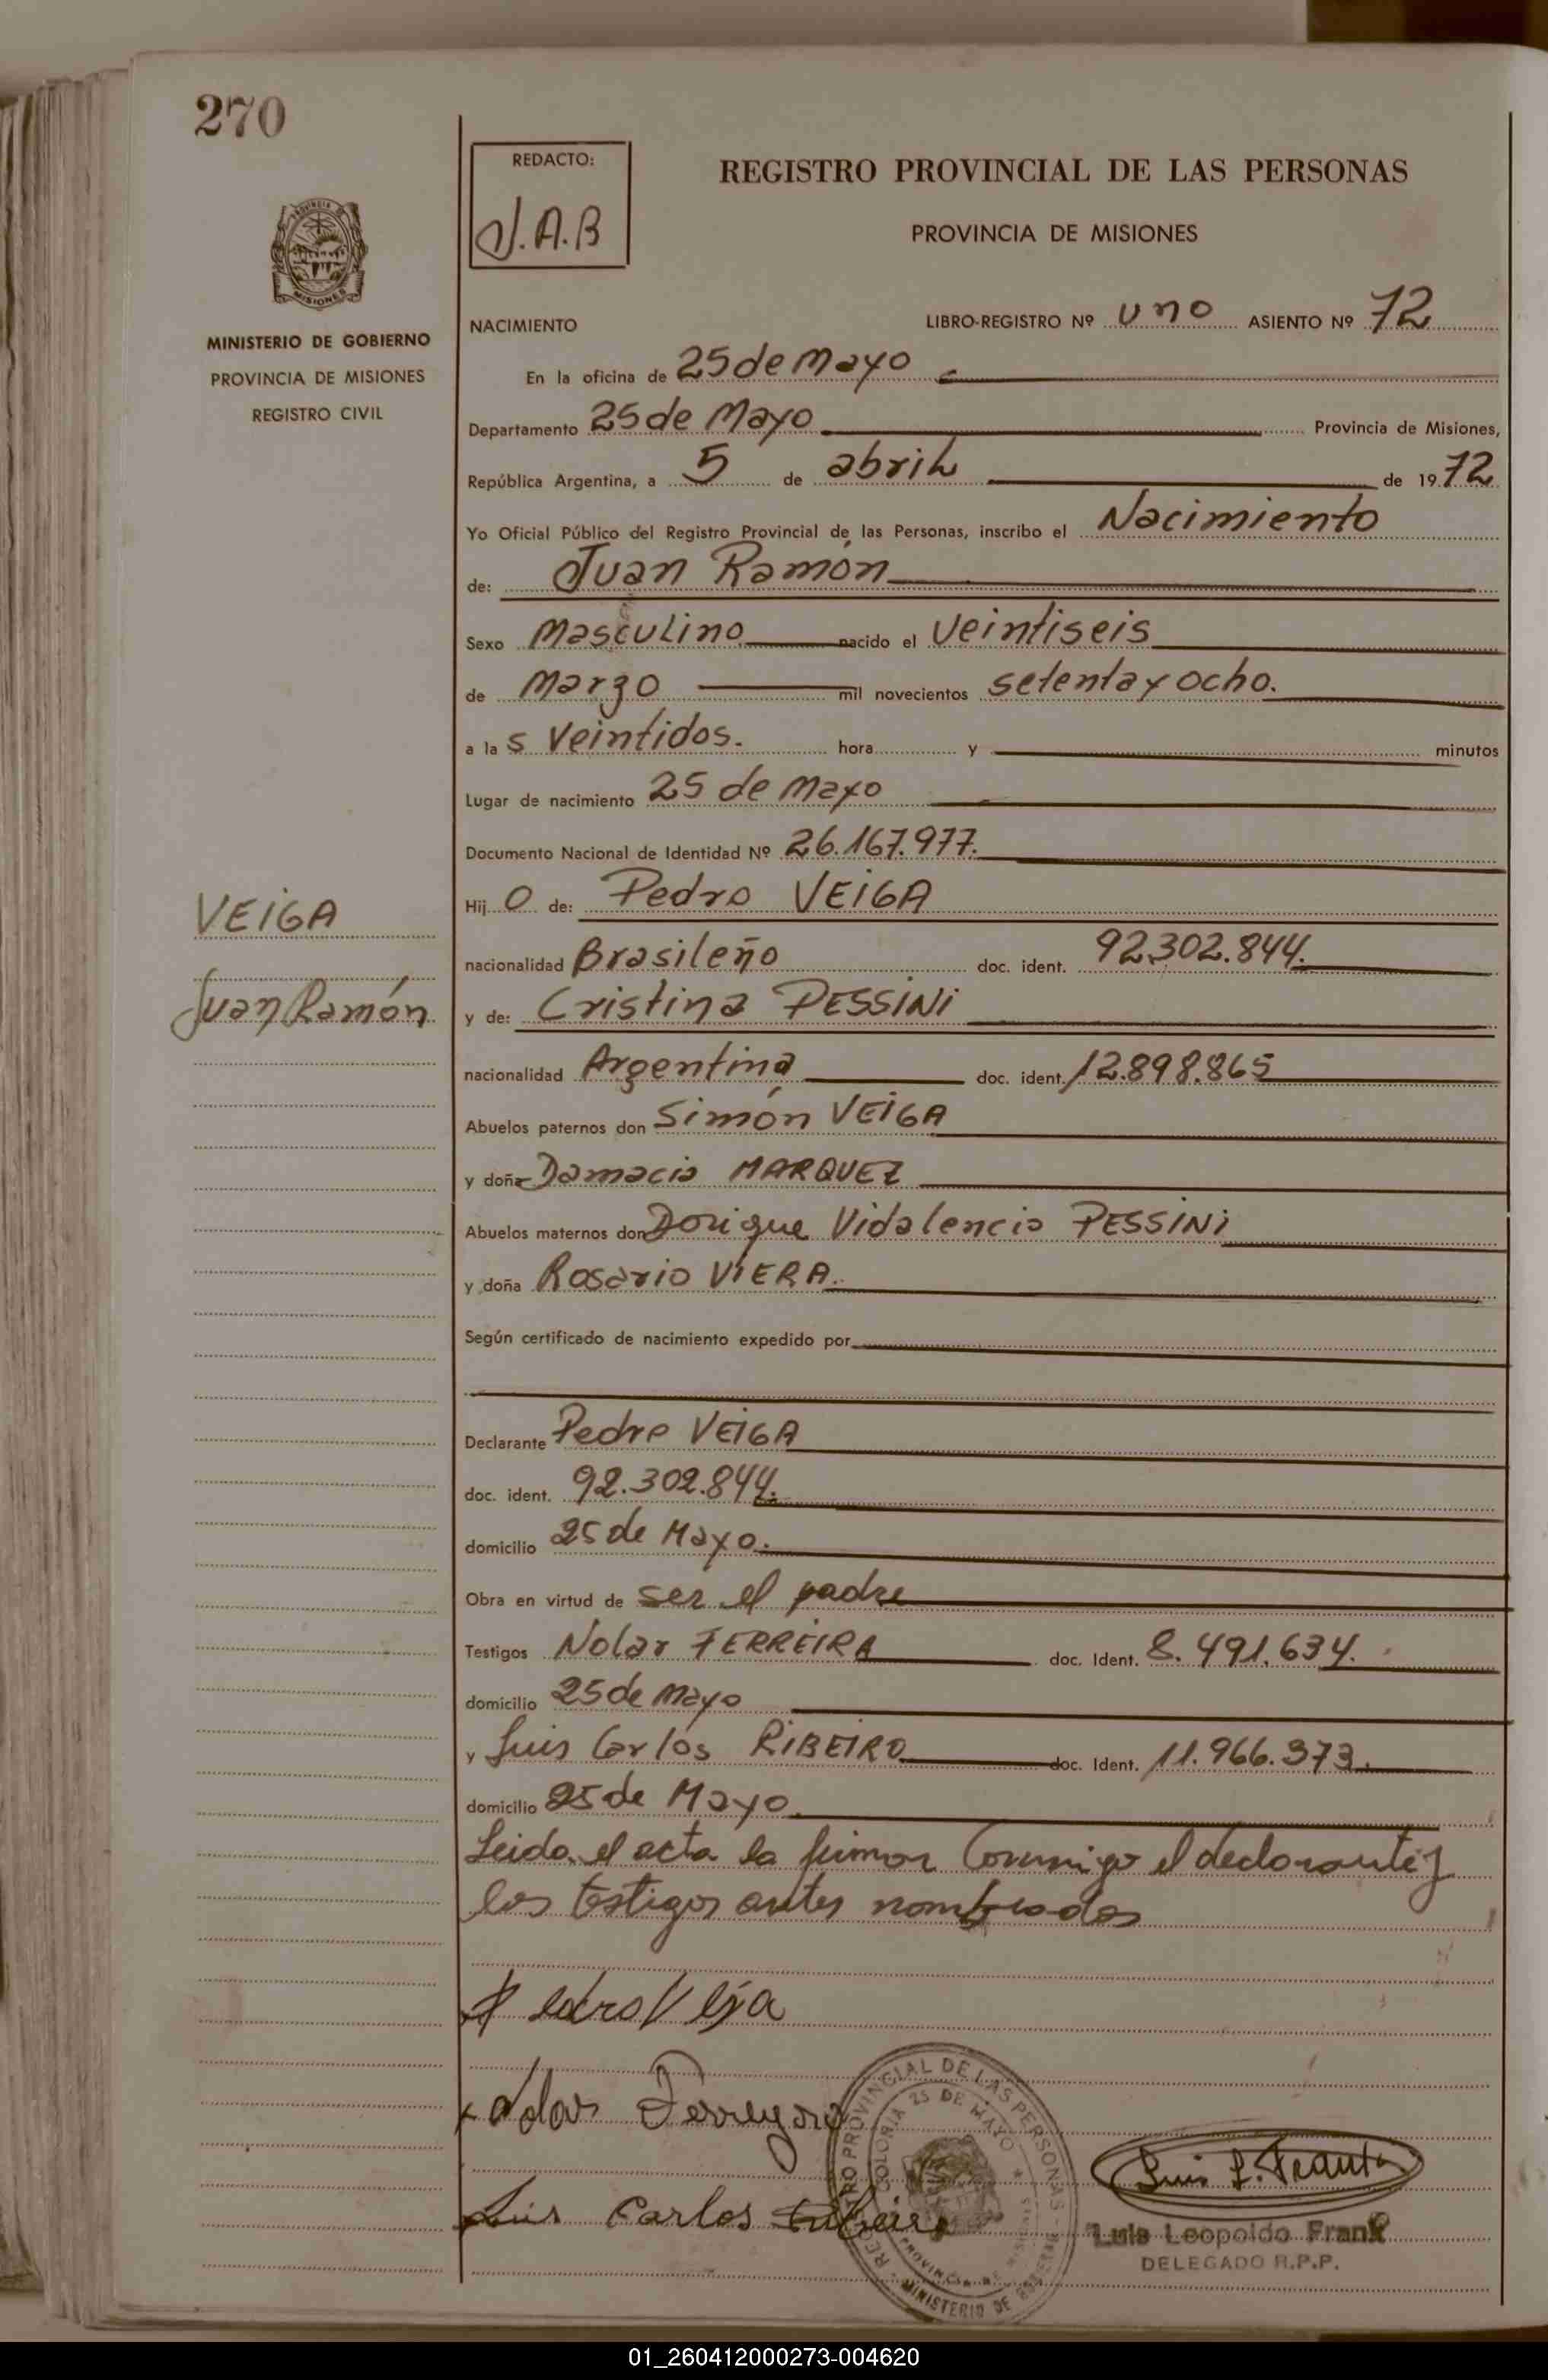 270
REDACTO:
J.A.B
REGISTRO PROVINCIAL DE LAS PERSONAS
PROVINCIA DE MISIONES
MISIONES
MINISTERIO DE GOBIERNO
PROVINCIA DE MISIONES
REGISTRO CIVIL
NACIMIENTO LIBRO-REGISTRO Nº uno ASIENTO Nº 72
En la oficina de 25 de Mayo
Departamento 25 de Mayo Provincia de Misiones,
República Argentina, a 5 de abril de 1972
Yo Oficial Público del Registro Provincial de las Personas, inscribo el Nacimiento
de: Juan Ramón
Sexo Masculino nacido el veintiseis
de Marzo mil novecientos setenta y ocho.
a la s veintidos. hora y minutos
Lugar de nacimiento 25 de Mayo
Documento Nacional de Identidad Nº 26.167.977.
Hij o de: Pedro VEIGA
VEIGA
nacionalidad Brasileño doc. ident. 92.302.844.
Juan Ramón
y de: Cristina PESSINI
nacionalidad Argentina doc. ident. 12.898.865
Abuelos paternos don Simón VEIGA
y doña Damacia MARQUEZ
Abuelos maternos don Dorique Vidalencio PESSINI
y doña Rosario VIERA.
Según certificado de nacimiento expedido por
Declarante Pedro VEIGA
doc. ident. 92.302.844.
domicilio 25 de Mayo.
Obra en virtud de ser el padre
Testigos Nolar FERREIRA doc. Ident. 8.491.634.
domicilio 25 de Mayo
y Luis Carlos RIBEIRO doc. Ident. 11.966.373.
domicilio 25 de Mayo
Leida el acta la firman Conmigo el declarante y
los testigos antes nombrados
Pedro Veja
Luis Carlos
REGISTRO PROVINCIAL DE LAS PERSONAS - MINISTERIO DE GOBIERNO
COLONIA 25 DE MAYO
PROVINCIA DE MISIONES
Luis L. Frank
Luis Leopoldo Frank
DELEGADO R.P.P.
01_260412000273-004620